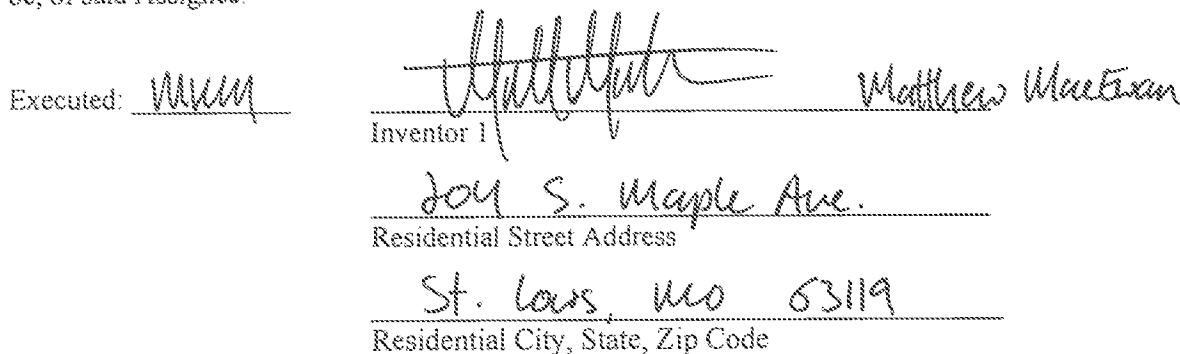 be, of said Assignee.
Executed: MRM Matthew MacEwan
Inventor 1
204 S. Maple Ave.
Residential Street Address
St. Louis, MO 63119
Residential City, State, Zip Code